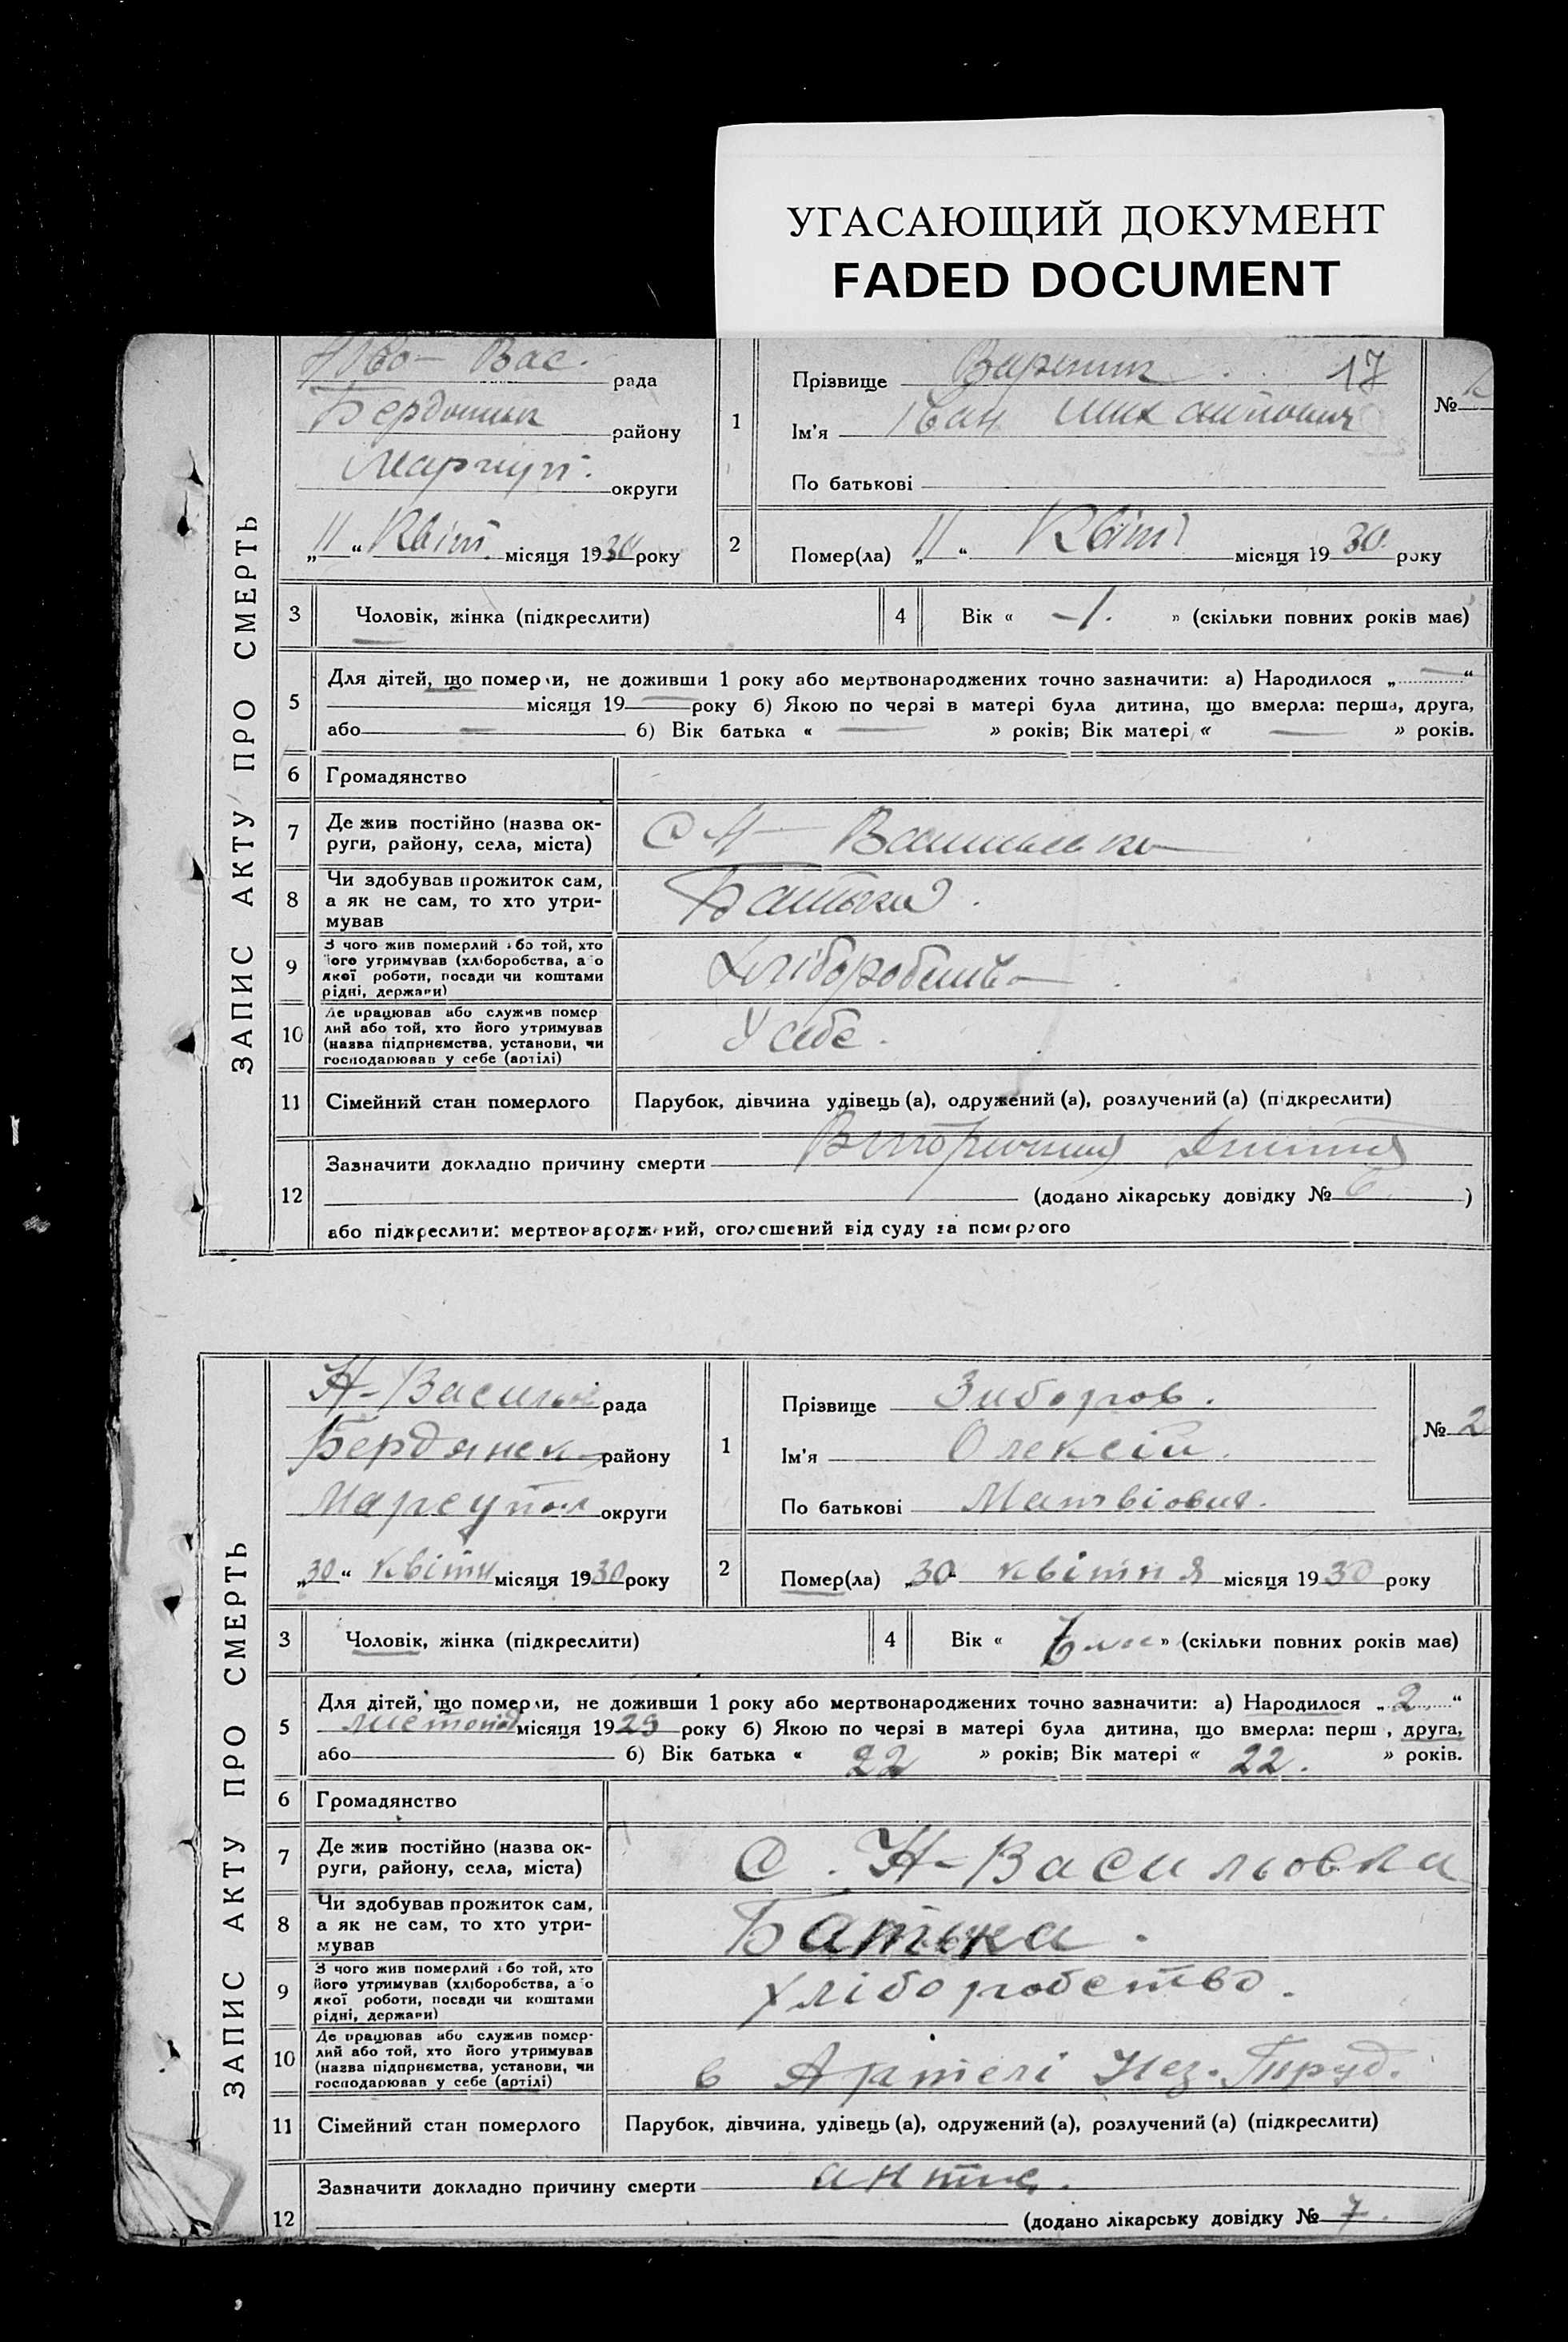 УГАСАЮЩИЙ ДОКУМЕНТ
FADED DOCUMENT
ЗАПИС АКТУ ПРО СМЕРТЬ
Ново- Вас. рада
району
Маріуп. округи
„11“ Квіт. місяця 1930 року
1
Прізвище 17
Ім'я Іван
По батькові
№
2
Помер(ла) „11“ Квіт місяця 1930 року
3 Чоловік, жінка (підкреслити)
4 Вік « 1. » (скільки повних років має)
5 Для дітей, що померли, не доживши 1 року або мертвонароджених точно зазначити: а) Народилося „ — “
місяця 19 — року б) Якою по черзі в матері була дитина, що вмерла: перша, друга,
або — б) Вік батька « — » років; Вік матері « — » років.
6 Громадянство
7 Де жив постійно (назва ок-
руги, району, села, міста)
С Н — Васильевка
8 Чи здобував прожиток сам,
а як не сам, то хто утри-
мував
Батька.
9 З чого жив померлий або той, хто
його утримував (хліборобства, або
якої роботи, посади чи коштами
рідні, держави)
Хліборобство
10 Де працював або служив помер-
лий або той, хто його утримував
(назва підприємства, установи, чи
господарював у себе (артілі)
У себе.
11 Сімейний стан померлого Парубок, дівчина удівець (а), одружений (а), розлучений (а) (підкреслити)
12 Зазначити докладно причину смерти
(додано лікарську довідку № 6 )
або підкреслити: мертвонароджений, оголошений від суду за померлого
ЗАПИС АКТУ ПРО СМЕРТЬ
Н-Василь рада
Бердянск району
Мареупол округи
„30“ квітн місяця 1930 року
1
Прізвище Зиборов.
Ім'я Олексій.
По батькові Матвіович.
№ 2
2
Помер(ла) „30“ квітня місяця 1930 року
3 Чоловік, жінка (підкреслити)
4 Вік « 6 мес » (скільки повних років має)
5 Для дітей, що померли, не доживши 1 року або мертвонароджених точно зазначити: а) Народилося „2“
листопад місяця 1929 року б) Якою по черзі в матері була дитина, що вмерла: перш , друга,
або б) Вік батька « 22 » років; Вік матері « 22. » років.
6 Громадянство
7 Де жив постійно (назва ок-
руги, району, села, міста)
С. Н-Васильовка
8 Чи здобував прожиток сам,
а як не сам, то хто утри-
мував
Батька.
9 З чого жив померлий або той, хто
його утримував (хліборобства, або
якої роботи, посади чи коштами
рідні, держави)
хліборобство.
10 Де працював або служив помер-
лий або той, хто його утримував
(назва підприємства, установи, чи
господарював у себе (артілі)
в Артелі Нез. Труд.
11 Сімейний стан померлого Парубок, дівчина, удівець (а), одружений (а), розлучений (а) (підкреслити)
12 Зазначити докладно причину смерти
(додано лікарську довідку № 7.